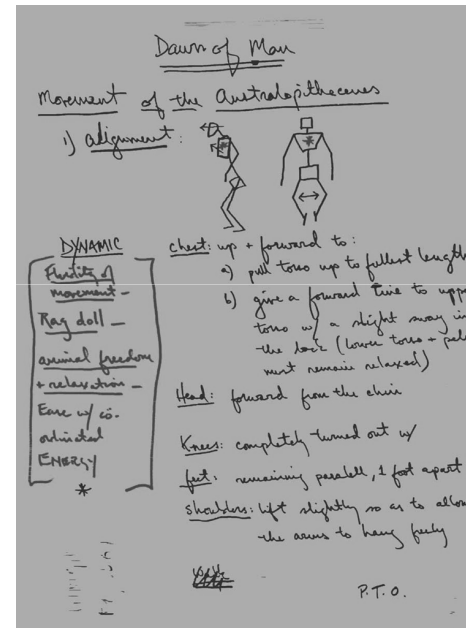 Dawn of Man
Movement of the Australopithecenes
1) alignment:
DYNAMIC
Fluidity of
movement -
Rag doll -
animal freedom
+ relaxation -
Ease w/ co-
ordinated
ENERGY
*
chest: up + forward to:
a) pull torso up to fullest length
b) give a forward line to uppe
torso w/ a slight sway in
the back (lower torso + pel
must remain relaxed)
Head: forward from the chin
Knees: completely turned out w/
feet: remaining parallel, 1 foot apart
shoulders: lift slightly so as to allow
the arms to hang freely
P.T.O.